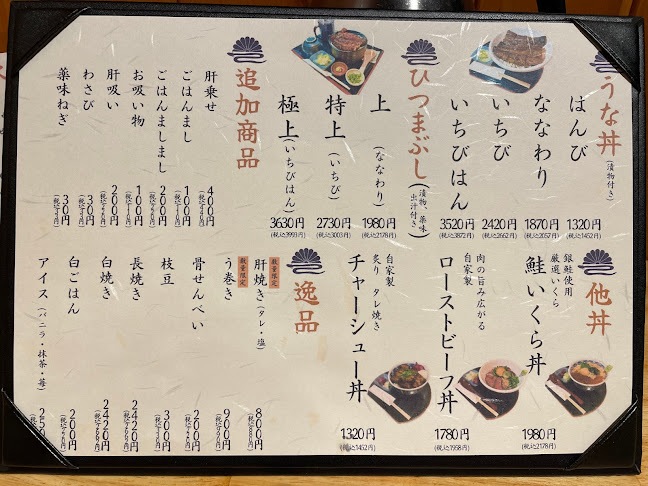 うな丼(漬物付き)
はんび
1320円
(税込1452円)
ななわり
1870円
(税込2057円)
いちび
2420円
(税込2662円)
いちびはん
3520円
(税込3872円)
ひつまぶし(漬物、薬味
出汁付き)
上
(ななわり)
1980円
(税込2178円)
特上
(いちび)
2730円
(税込3003円)
極上
(いちびはん)
3630円
(税込3993円)
追加商品
肝乗せ
400円
ごはんまし
100円
ごはんましまし
200円
お吸い物
100円
肝吸い
200円
わさび
30円
薬味ねぎ
30円
他丼
銀鮭使用
厳選いくら
鮭いくら丼
1980円
(税込2178円)
肉の旨み広がる
自家製
ローストビーフ丼
1780円
(税込1958円)
自家製
炙り タレ焼き
チャーシュー丼
1320円
(税込1452円)
逸品
数量限定
肝焼き(タレ・塩)
800円
数量限定
う巻き
900円
骨せんべい
200円
枝豆
300円
長焼き
2420円
白焼き
2420円
白ごはん
200円
アイス(バニラ・抹茶・苺)
250